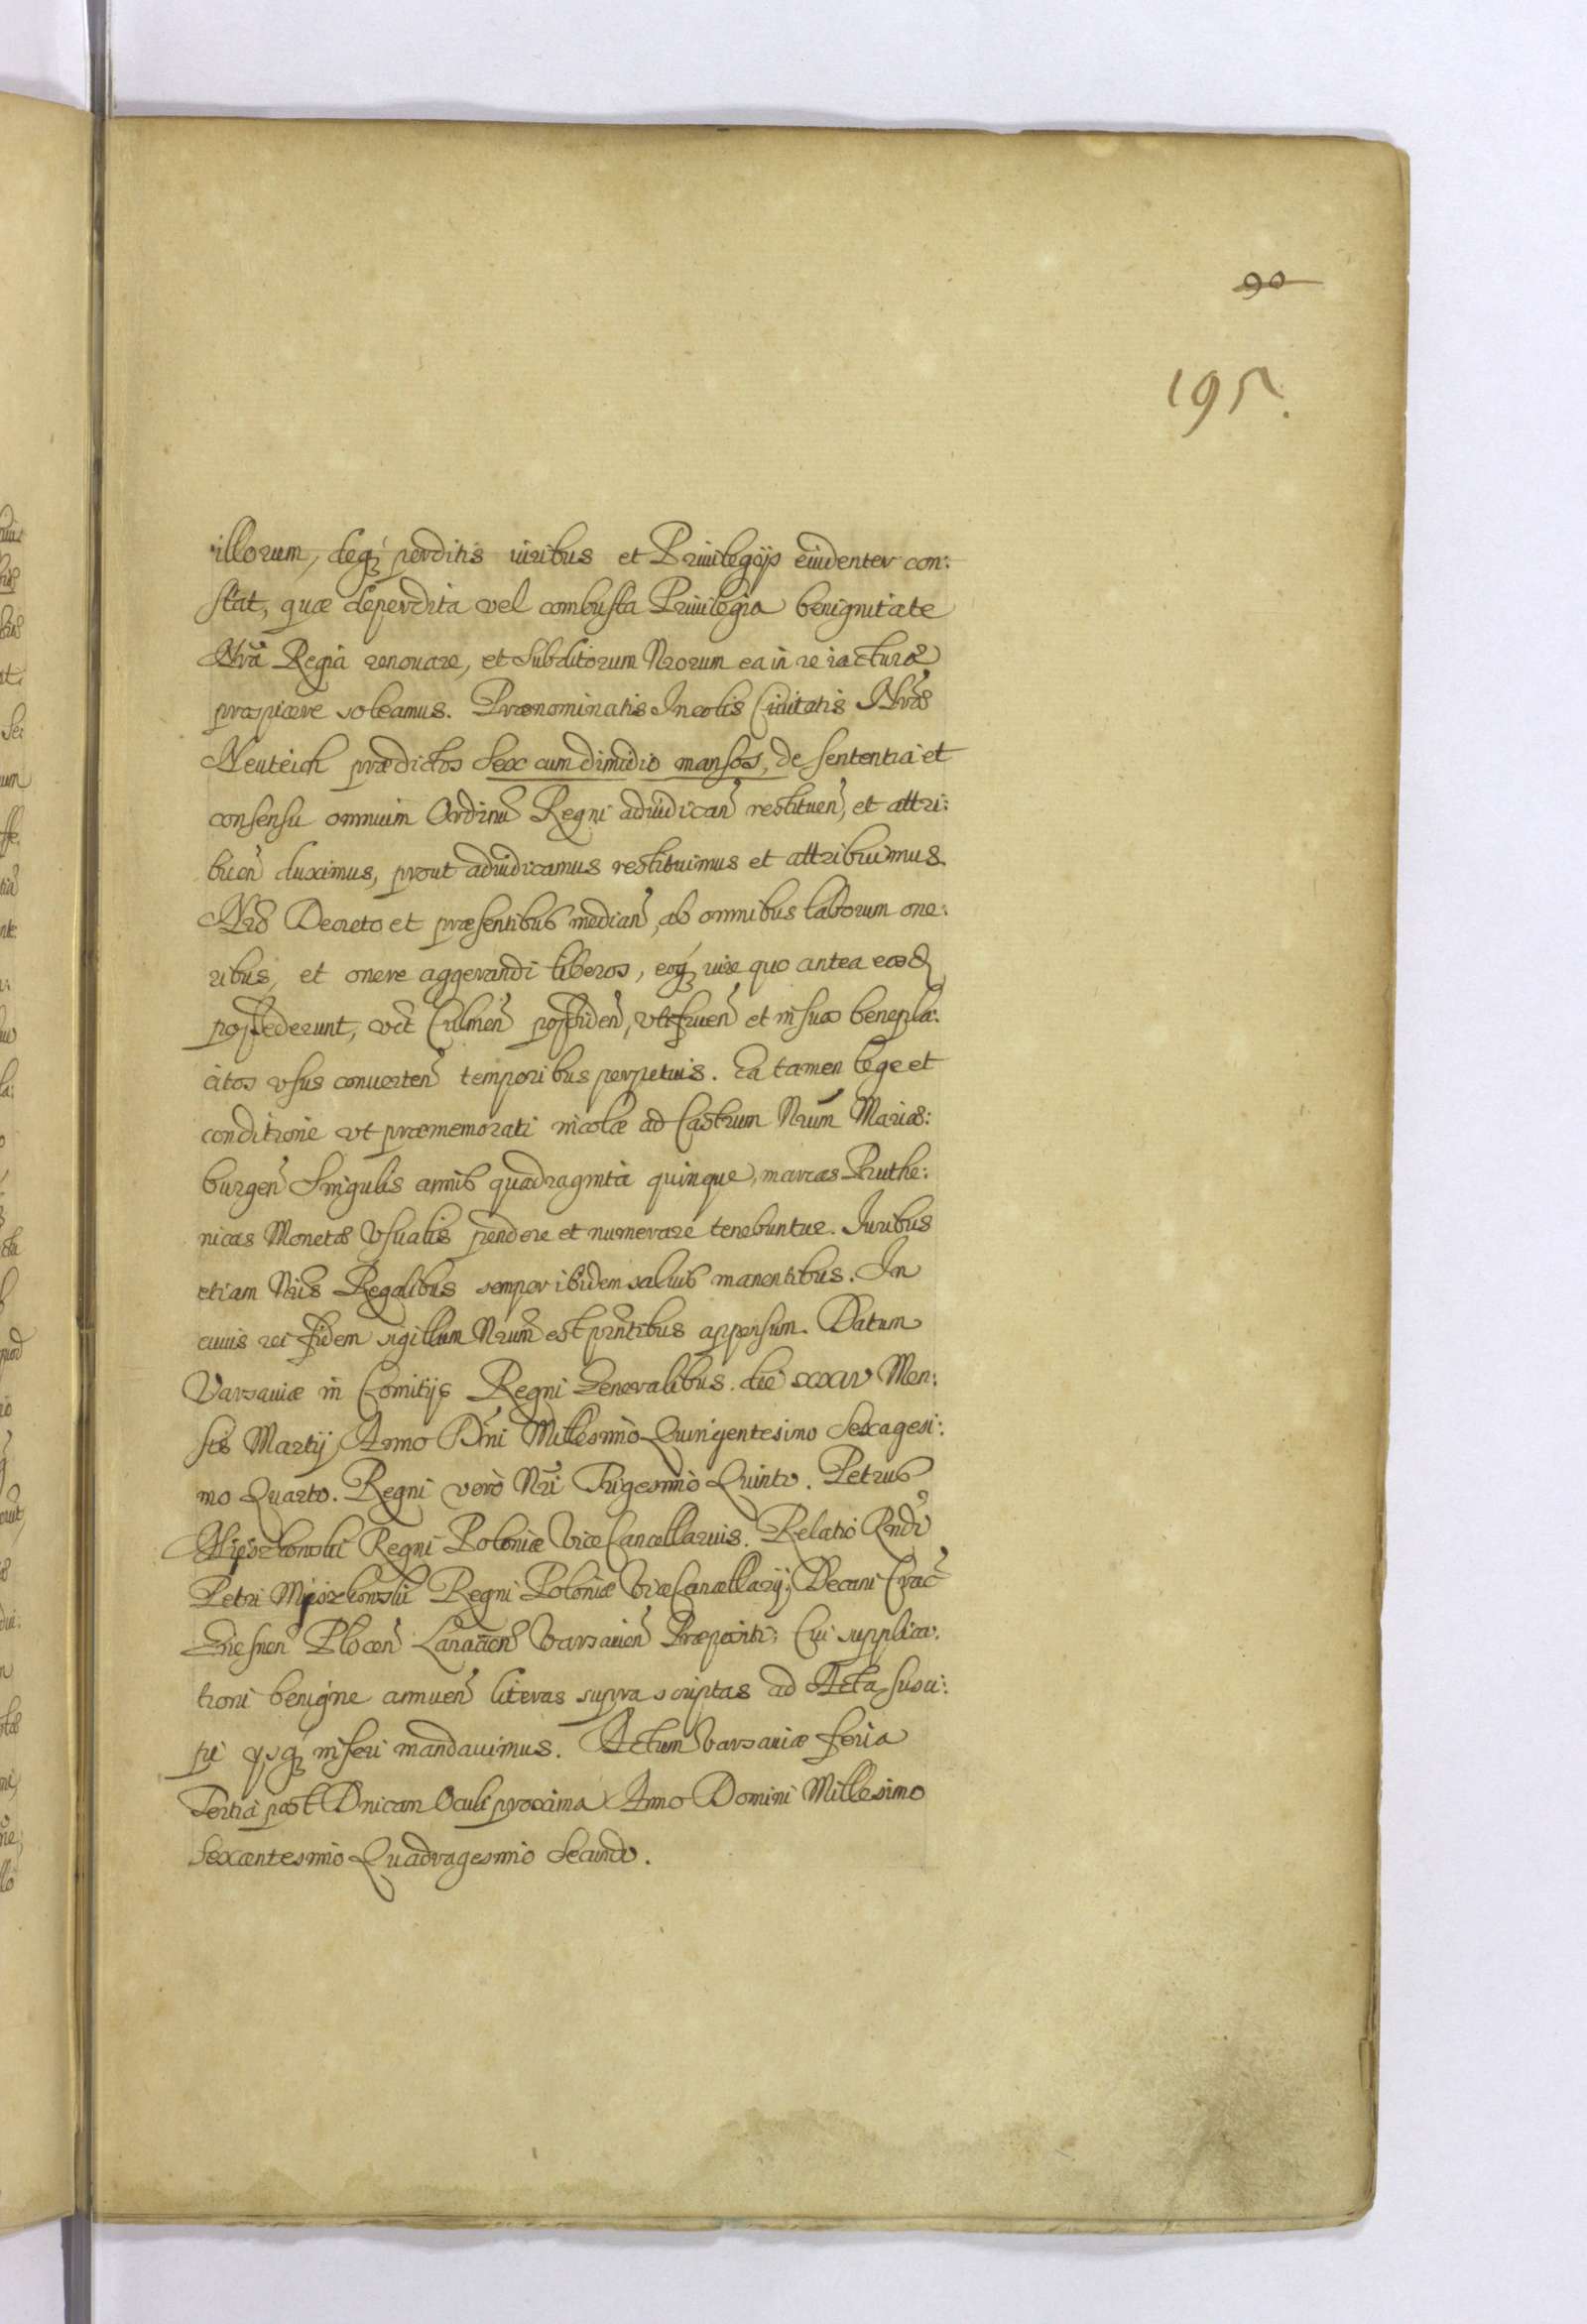 90
195.
illorum, deq₃ perditis iuribus et Priuilegijs euidenter con:
stat, quæ deperdita vel combusta Priuilegia benignitate
Nrã Regia renouare, et Subditorum Nrorum ea in re iacturæ
prospicere soleamus. Prænominatis Incolis Ciuitatis Nræ
Neuteich prædictos Sex cum dimidio mansos, de sententia et
consensu omnium Ordinũ Regni adiudicañ restitueñ, et attri:
bueñ duximus, prout adiudicamus restituimus et attribuimus.
Nro Decreto et præsentibus mediañ, ab omnibus laborum one:
ribus, et onere aggerandi liberos, eoq₃ iure quo antea eosd
possederunt, vct Culmeñ possideñ, vtifrueñ et in suos benepla:
citos vsus conuerteñ temporibus perpetuis. Ea tamen lege et
conditione vt præmemorati incolæ ad Castrum Nrum̃ Mariæ:
burgeñ Singulis annis quadraginta quinque, marcas Pruthe:
nicas Monetæ Vsualis pendere et numerare tenebuntur. Iuribus
etiam Nris Regalibus semper ibidem saluis manentibus. In
cuius rei fidem sigillum Nrum est pñtibus appensum. Datum
Varsauiæ in Comitijs Regni Generalibus. die xxxiv Men:
sis Martij Anno Dñi Millesimo Quingentesimo Sexagesi:
mo Quarto. Regni vero Nri Trigesimo Quinto. Petrus
Mijszkowski Regni Poloniæ ViceCancellarius. Relatio Rndi
Petri Mijszkowski Regni Poloniæ ViceCancellarij, Decani Crac̃
Gnesneñ Ploceñ Lancicieñ Varsauieñ Præpositi; Cui supplica:
tioni benigne annueñ literas supra scriptas ad Acta susci:
pi ijsq₃ inseri mandauimus. Actum Varsauiæ feria
Tertia post Dnicam Oculi proxima Anno Domini Millesimo
Sexcentesimo Quadragesimo Secundo.